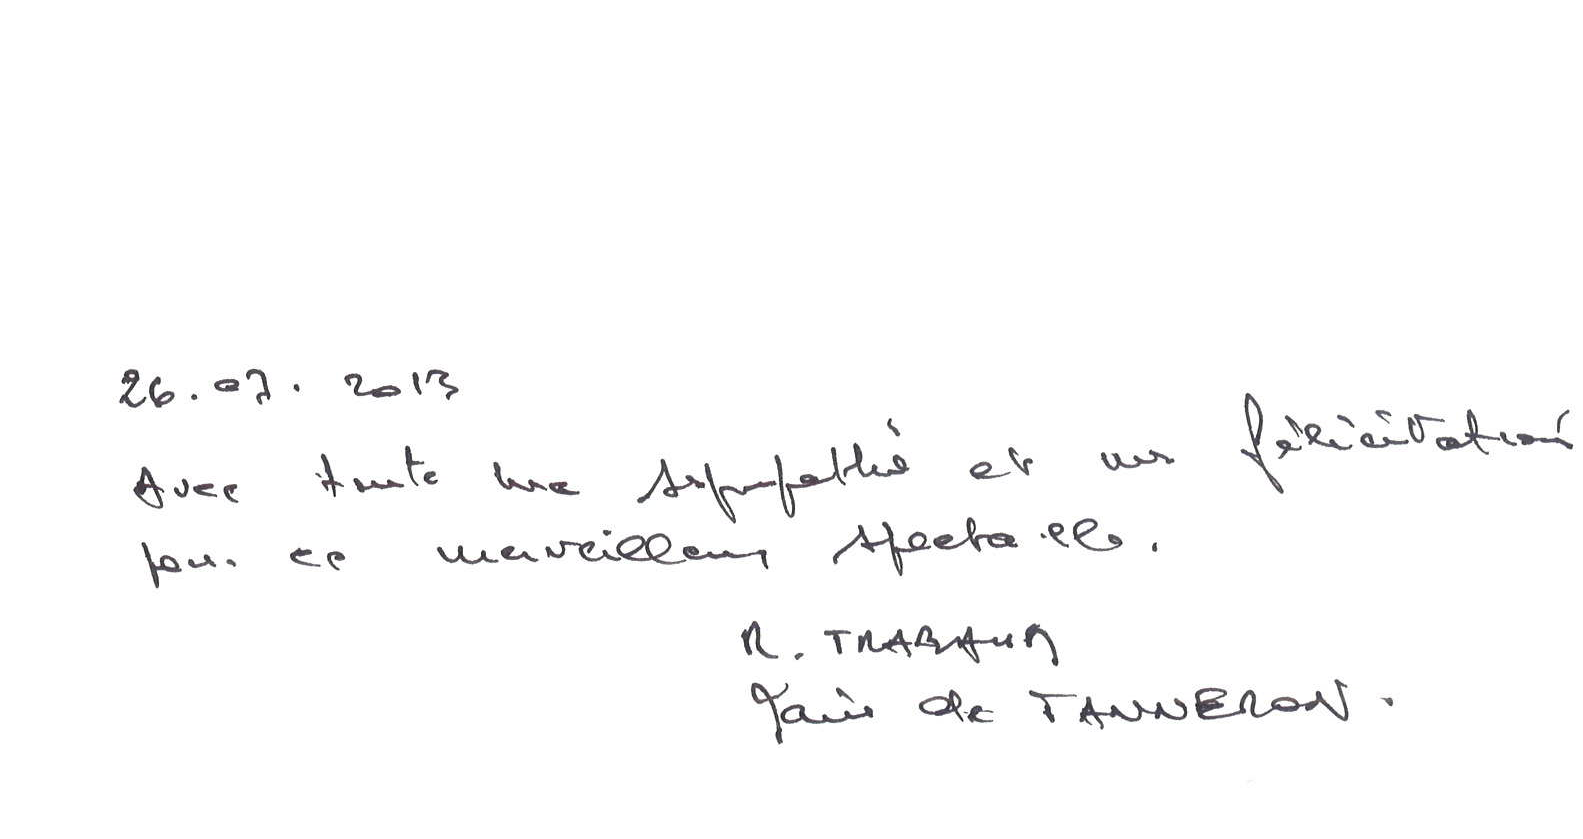 26.07.2013
Avec toute ma sympathie et mes félicitations
pour ce merveilleux spectacle.
R. TRABAUD
Maire de TANNERON.